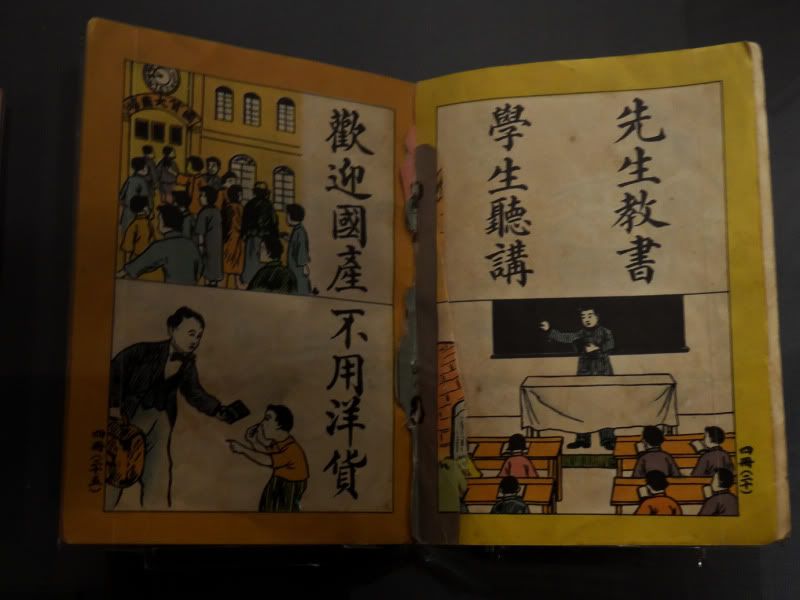 先生教書
學生聽講
四冊(二十)
歡迎國產
不用洋貨
四冊(二十五)